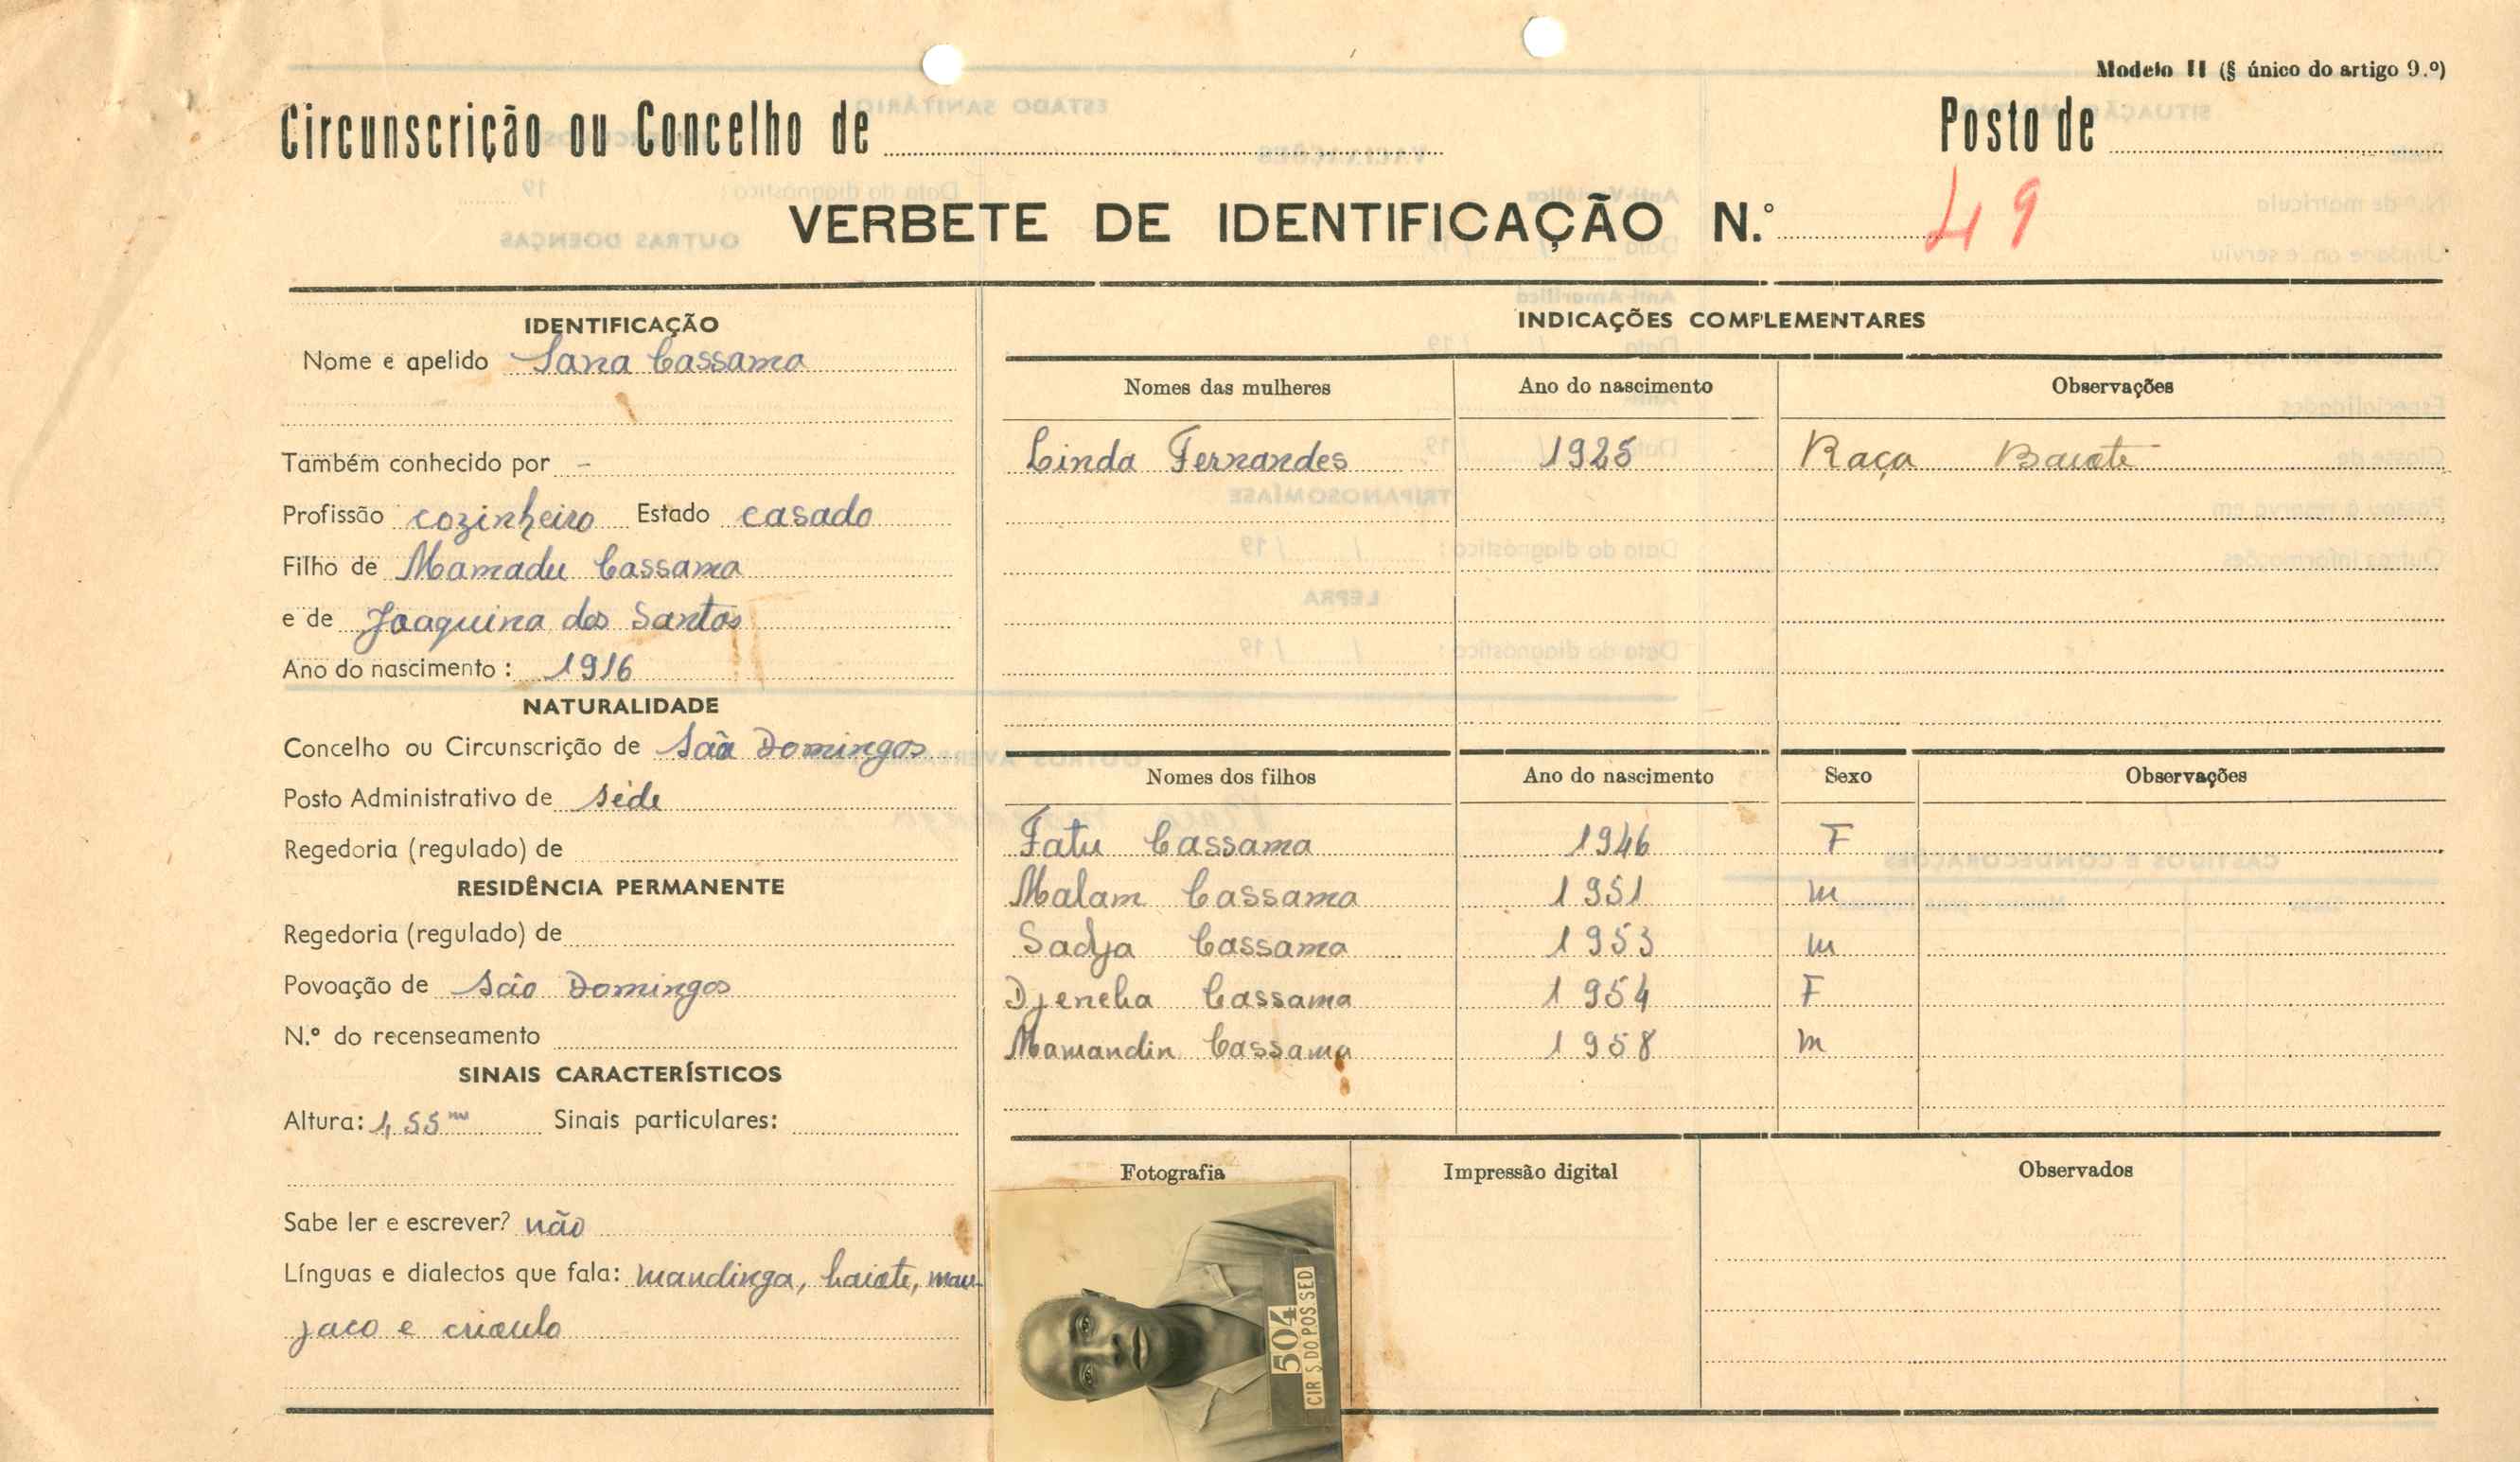 Modelo II (§ único do artigo 9.º)
Circunscrição ou Concelho de
Posto de
VERBETE DE IDENTIFICAÇÃO N.º 49
IDENTIFICAÇÃO
Nome e apelido Sana Cassama
Também conhecido por -
Profissão cozinheiro Estado casado
Filho de Mamadu Cassama
e de Joaquina dos Santos
Ano do nascimento: 1916
NATURALIDADE
Concelho ou Circunscrição de São Domingos
Posto Administrativo de séde
Regedoria (regulado) de
RESIDÊNCIA PERMANENTE
Regedoria (regulado) de
Povoação de São Domingos
N.º do recenseamento
SINAIS CARACTERÍSTICOS
Altura: 1,55m Sinais particulares:
Sabe ler e escrever? não
Línguas e dialectos que fala: mandinga, baiote, man-
jaco e crioulo
INDICAÇÕES COMPLEMENTARES
Nomes das mulheres Ano do nascimento Observações
Linda Fernandes 1925 Raça Baiote
Nomes dos filhos Ano do nascimento Sexo Observações
Fatu Cassama 1946 F
Malam Cassama 1951 m
Sadja Cassama 1953 m
Djeneba Cassama 1954 F
Mamandin Cassama 1958 m
Fotografia Impressão digital Observados
504
CIR S DO POS SED